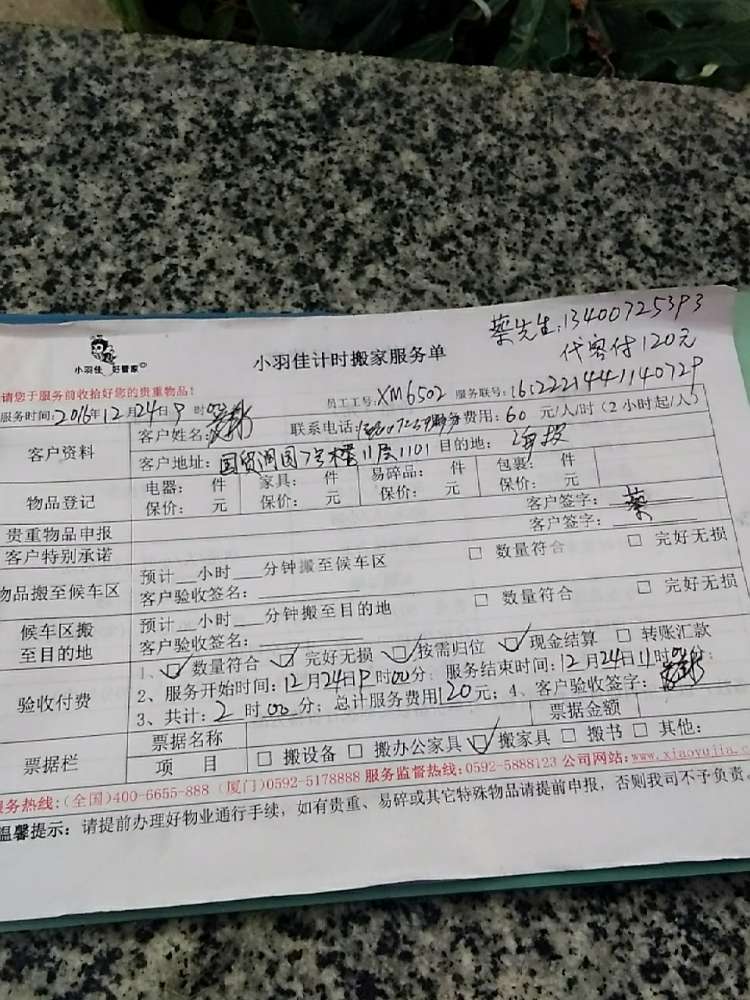 蔡先生:13400725393
代客付120元
小羽佳 好管家
小羽佳计时搬家服务单
请您于服务前收拾好您的贵重物品!
服务时间:2016年12月24日9时00 员工工号:XM6502 服务联号:
客户资料 客户姓名: 联系电话: 服务费用:60元/人/时(2小时起/人)
客户地址:国贸润园7号楼11层1101 目的地:海投
物品登记 电器: 件 家具: 件 易碎品: 件 包裹: 件
保价: 元 保价: 元 保价: 元 保价: 元
贵重物品申报 客户签字:蔡
客户特别承诺 客户签字:
物品搬至候车区 预计__小时___分钟搬至候车区 □ 数量符合 □ 完好无损
客户验收签名:
候车区搬至目的地 预计__小时___分钟搬至目的地 □ 数量符合 □ 完好无损
客户验收签名:
验收付费 1、☑数量符合 ☑完好无损 ☑按需归位 ☑现金结算 □ 转账汇款
2、服务开始时间:12月24日9时00分; 服务结束时间:12月24日11时00分;
3、共计:2时00分; 总计服务费用120元; 4、客户验收签字:
票据栏 票据名称 票据金额
项 目 □ 搬设备 □ 搬办公家具 ☑搬家具 □ 搬书 □ 其他:
服务热线:(全国)400-6655-888 (厦门)0592-5178888 服务监督热线:0592-5888123 公司网站:www.xiaoyujia.com
温馨提示:请提前办理好物业通行手续,如有贵重、易碎或其它特殊物品请提前申报,否则我司不予负责。